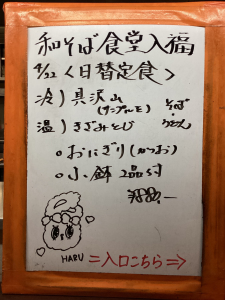 和そば食堂入福
4/22 <日替定食>
冷) 具沢山
(サンプルモ)
そば・うどん
温) きざみとじ
。おにぎり(かつお)
。小鉢 2品付
HARU
=入口こちら⇒